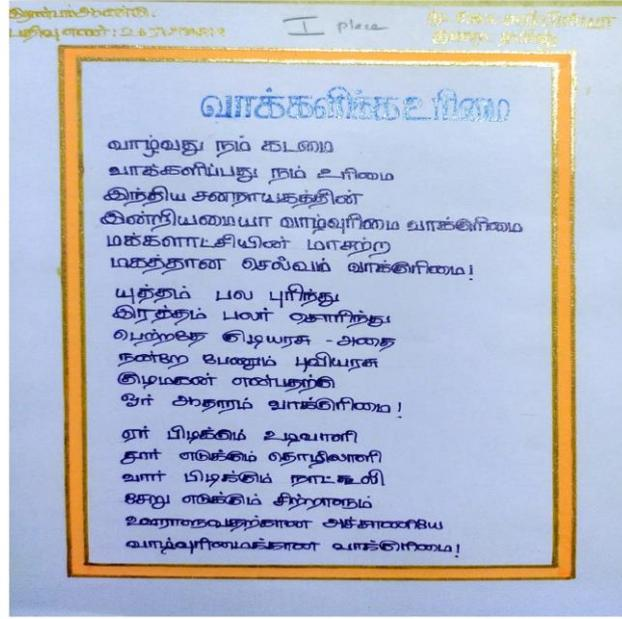 இரண்டாம் ஆண்டு.
பதிவு எண் :
I place
இளங்கலை தமிழ்
வாக்களிக்க உரிமை
வாழ்வது நம் கடமை
வாக்களிப்பது நம் உரிமை
இந்திய சனநாயகத்தின்
இன்றியமையா வாழ்வுரிமை வாக்குரிமை
மக்களாட்சியின் மாசற்ற
மகத்தான செல்வம் வாக்குரிமை!
யுத்தம் பல புரிந்து
இரத்தம் பலர் சொரிந்து
பெற்றதே குடியரசு - அதை
நன்றே பேணும் புவியரசு
குடிமகன் என்பதற்கு
ஓர் ஆதாரம் வாக்குரிமை!
ஏர் பிடிக்கும் உழவாளி
தார் எடுக்கும் தொழிலாளி
வார் பிடிக்கும் நாட்கூலி
சேறு எடுக்கும் சிற்றாளும்
ஊராளுவதற்கான அச்சாணியே
வாழ்வுரிமைக்கான வாக்குரிமை!